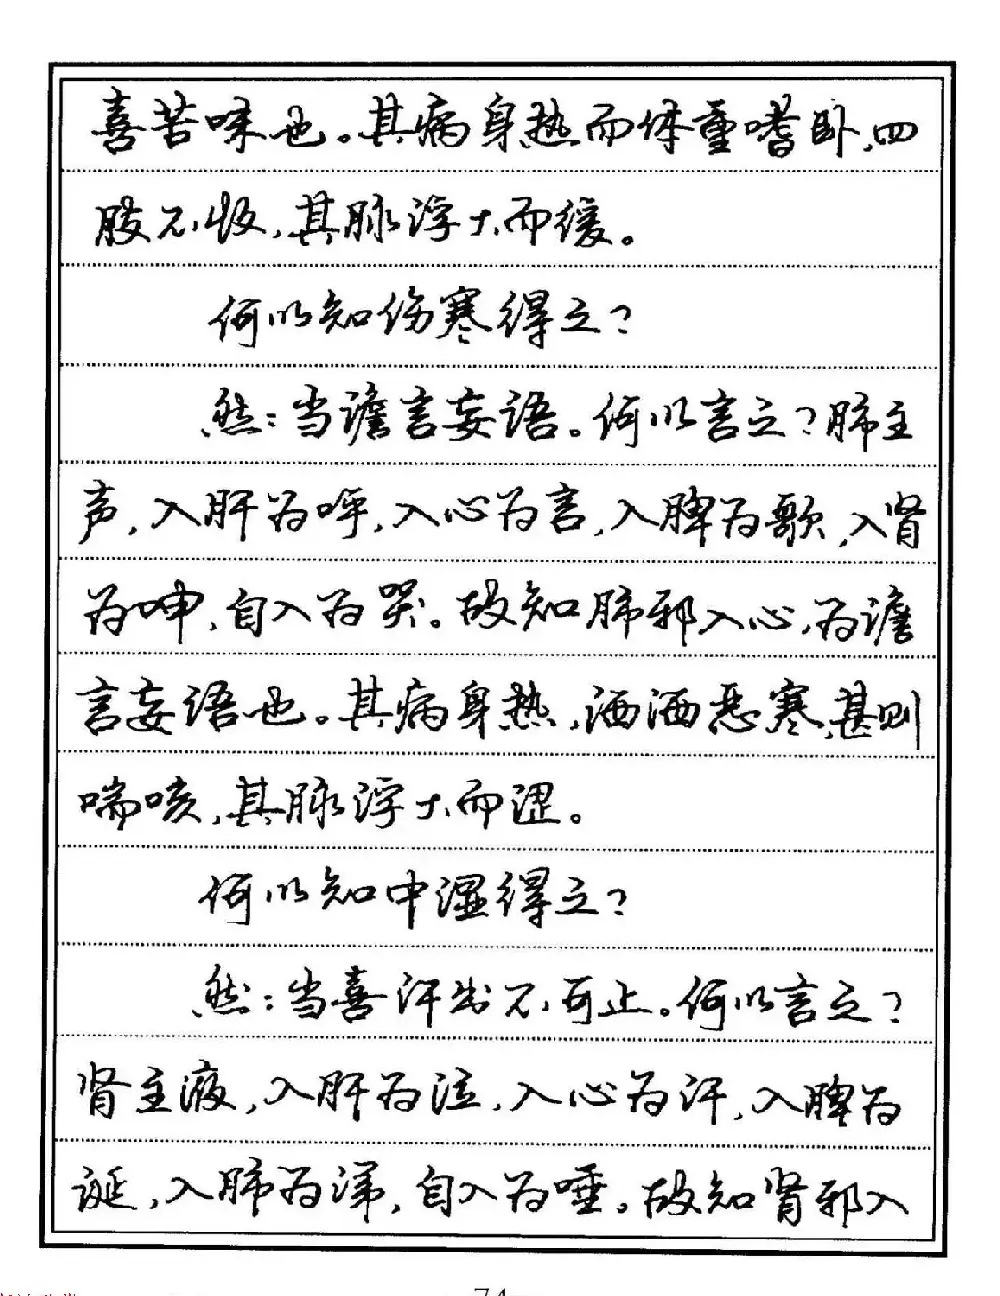 喜苦味也。其病身热而体重嗜卧,四
肢不收,其脉浮大而缓。
何以知伤寒得之?
然:当谵言妄语。何以言之?肺主
声,入肝为呼,入心为言,入脾为歌,入肾
为呻,自入为哭。故知肺邪入心,为谵
言妄语也。其病身热,洒洒恶寒,甚则
喘咳,其脉浮大而涩。
何以知中湿得之?
然:当喜汗出不可止。何以言之?
肾主液,入肝为泣,入心为汗,入脾为
诞,入肺为涕,自入为唾。故知肾邪入
74